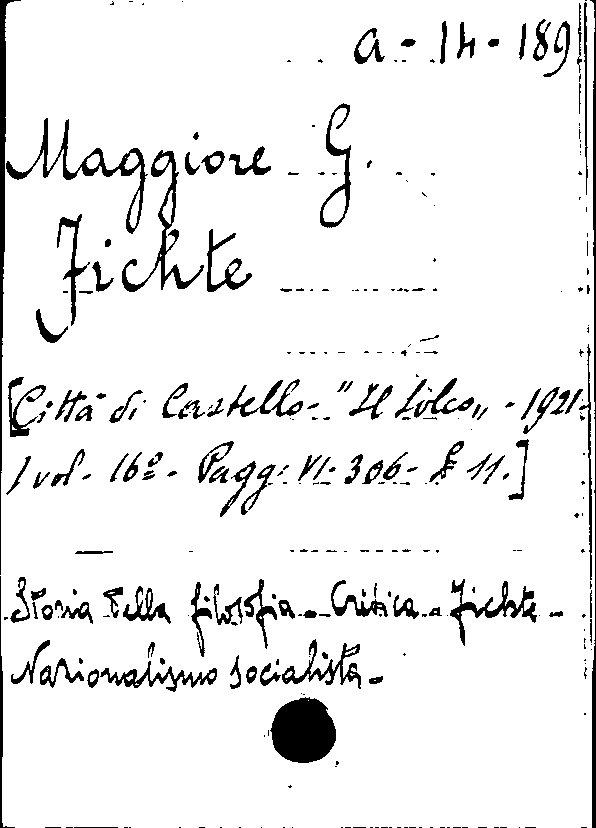 a - 14 - 189
Maggiore G.
Fichte
[Città di Castello - "Il Solco„ - 1921 -
1 vol - 16º - Pagg: VI - 306 - £ 11.]
Storia della filosofia - Critica - Fichte -
Nazionalismo socialista -